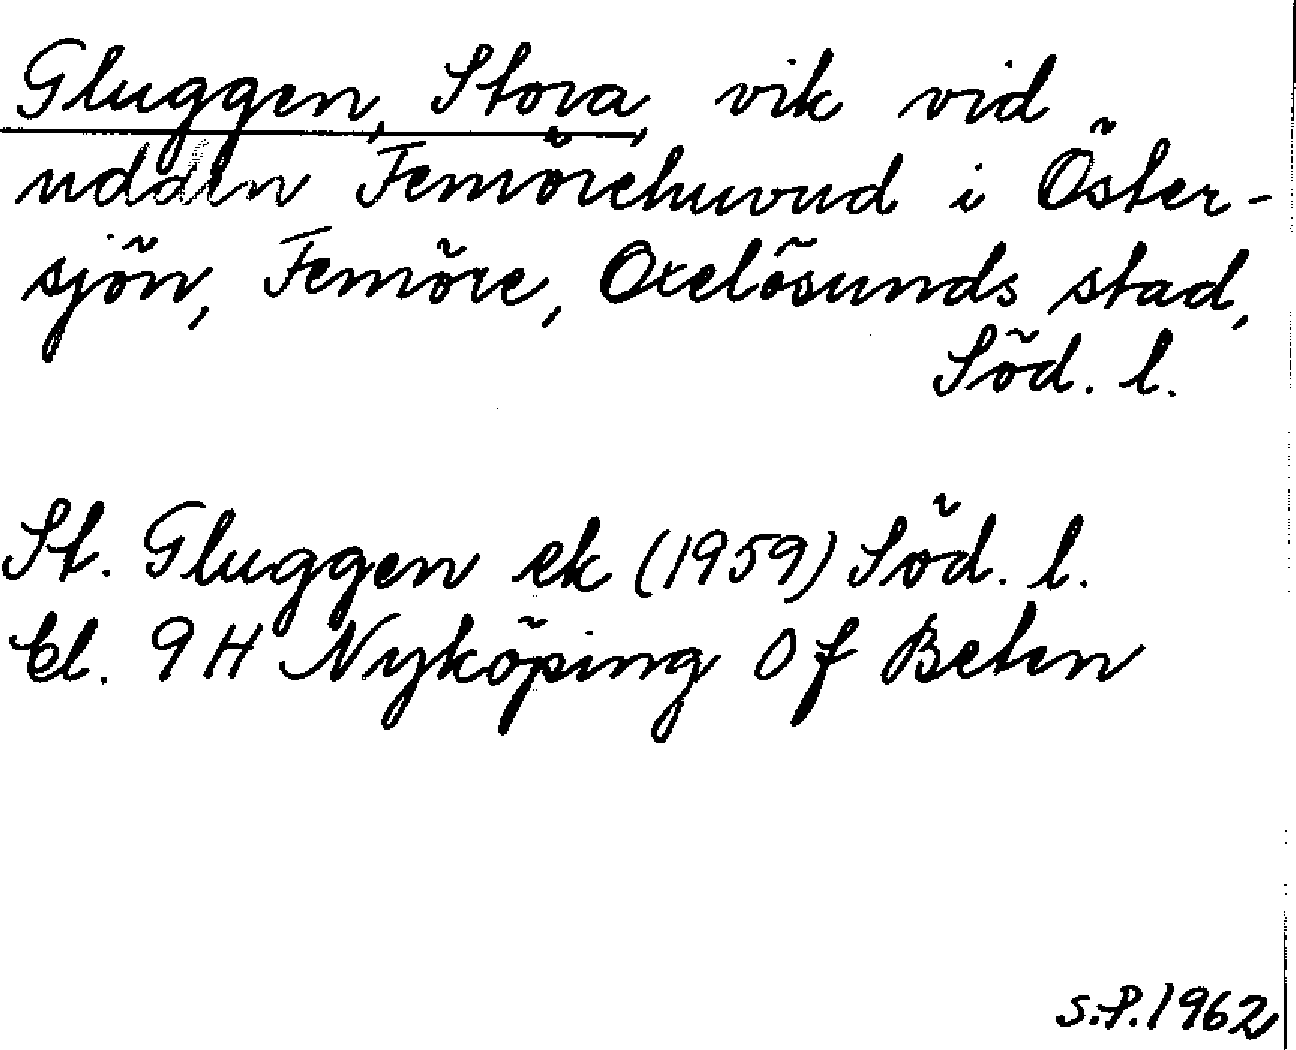 Gluggen, Stora, vik vid
udden Femörehuvud i Öster-
sjön, Femöre, Oxelösunds stad,
Söd. l.
St. Gluggen ek (1959) Söd. l.
bl. 9 H Nyköping 0 f Beten
S.P. 1962